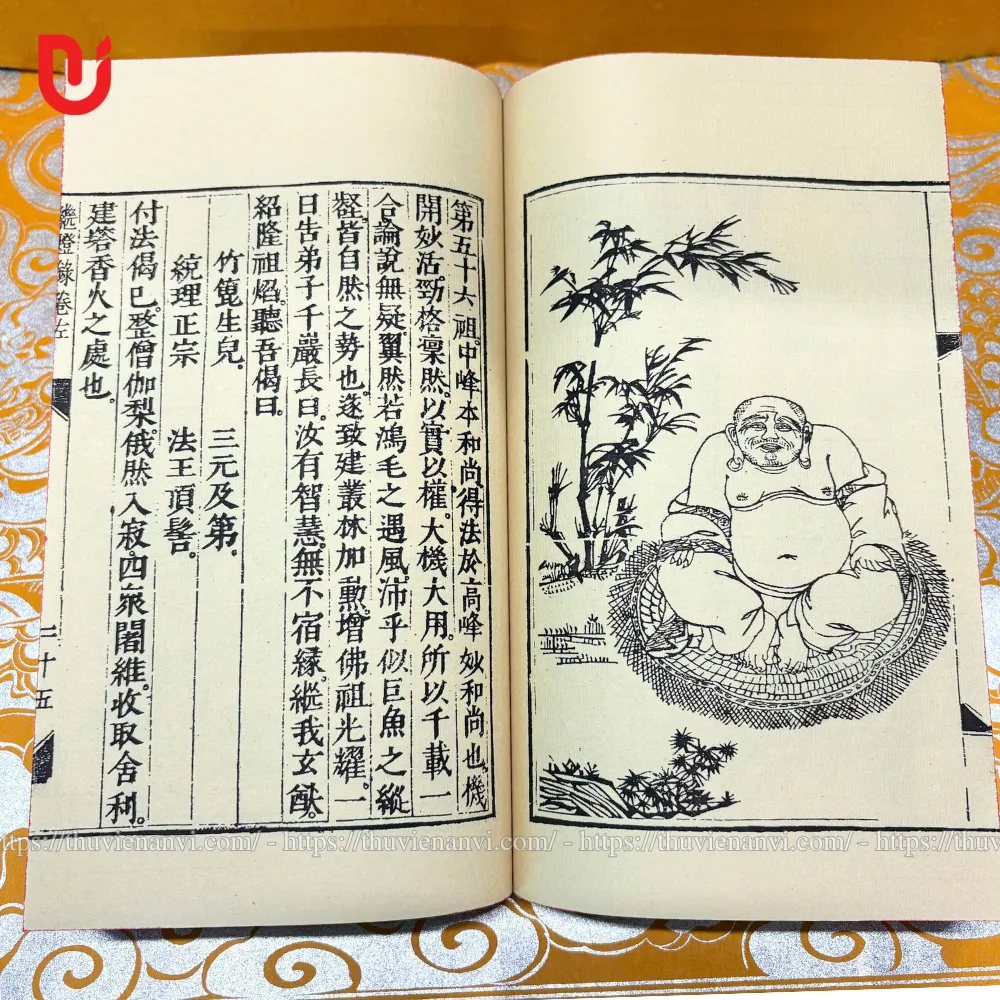 第五十六祖。中峰本和尚。得法於高峰妙和尚也。機
開妙活。勁格凜然。以實以權。大機大用。所以千載一
合。論說無疑。翼然若鴻毛之遇風。沛乎似巨魚之縱
壑。皆自然之勢也。遂致建叢林加勳。增佛祖光耀。一
日告弟子千巖長曰。汝有智慧。無不宿緣。繼我玄猷。
紹隆祖焰。聽吾偈曰。
竹篦生兒。 三元及第。
統理正宗 法王頂髻。
付法偈已。整僧伽梨。俄然入寂。四眾闍維。收取舍利。
建塔香火之處也。
繼燈錄卷左
二十五
https://thuvienanvi.com/ - https://thuvienanvi.com/ - https://thuvienanvi.com/ - https://thuv